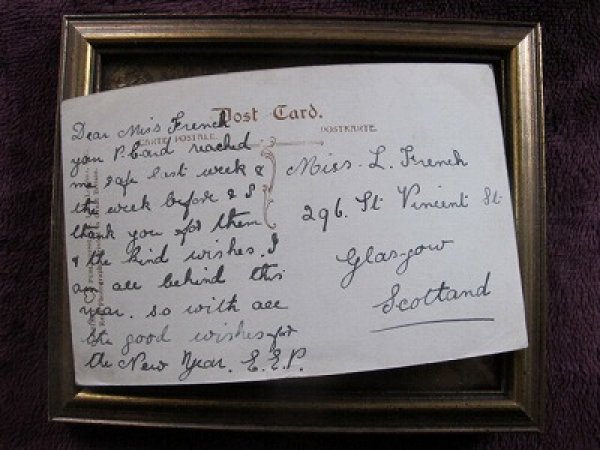 Post Card.
CARTE POSTALE.
POSTKARTE.
Dear Miss French
your P. Card reached
me safe last week &
the week before & I
thank you for them
& the kind wishes. I
am all behind this
year. so with all
the good wishes for
the New Year. E.E.P.
Miss. L. French
296. St Vincent St.
Glasgow
Scotland